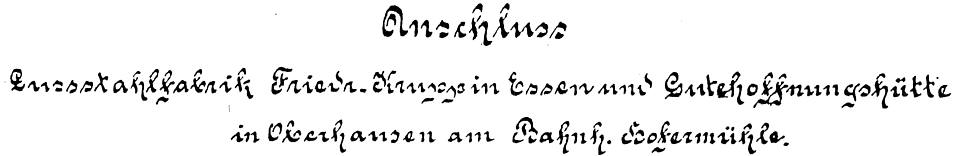 Anschluss
Gussstahlfabrik Friedr. Krupp in Essen und Gutehoffnungshütte
in Oberhausen am Bahnh. Hofermühle.